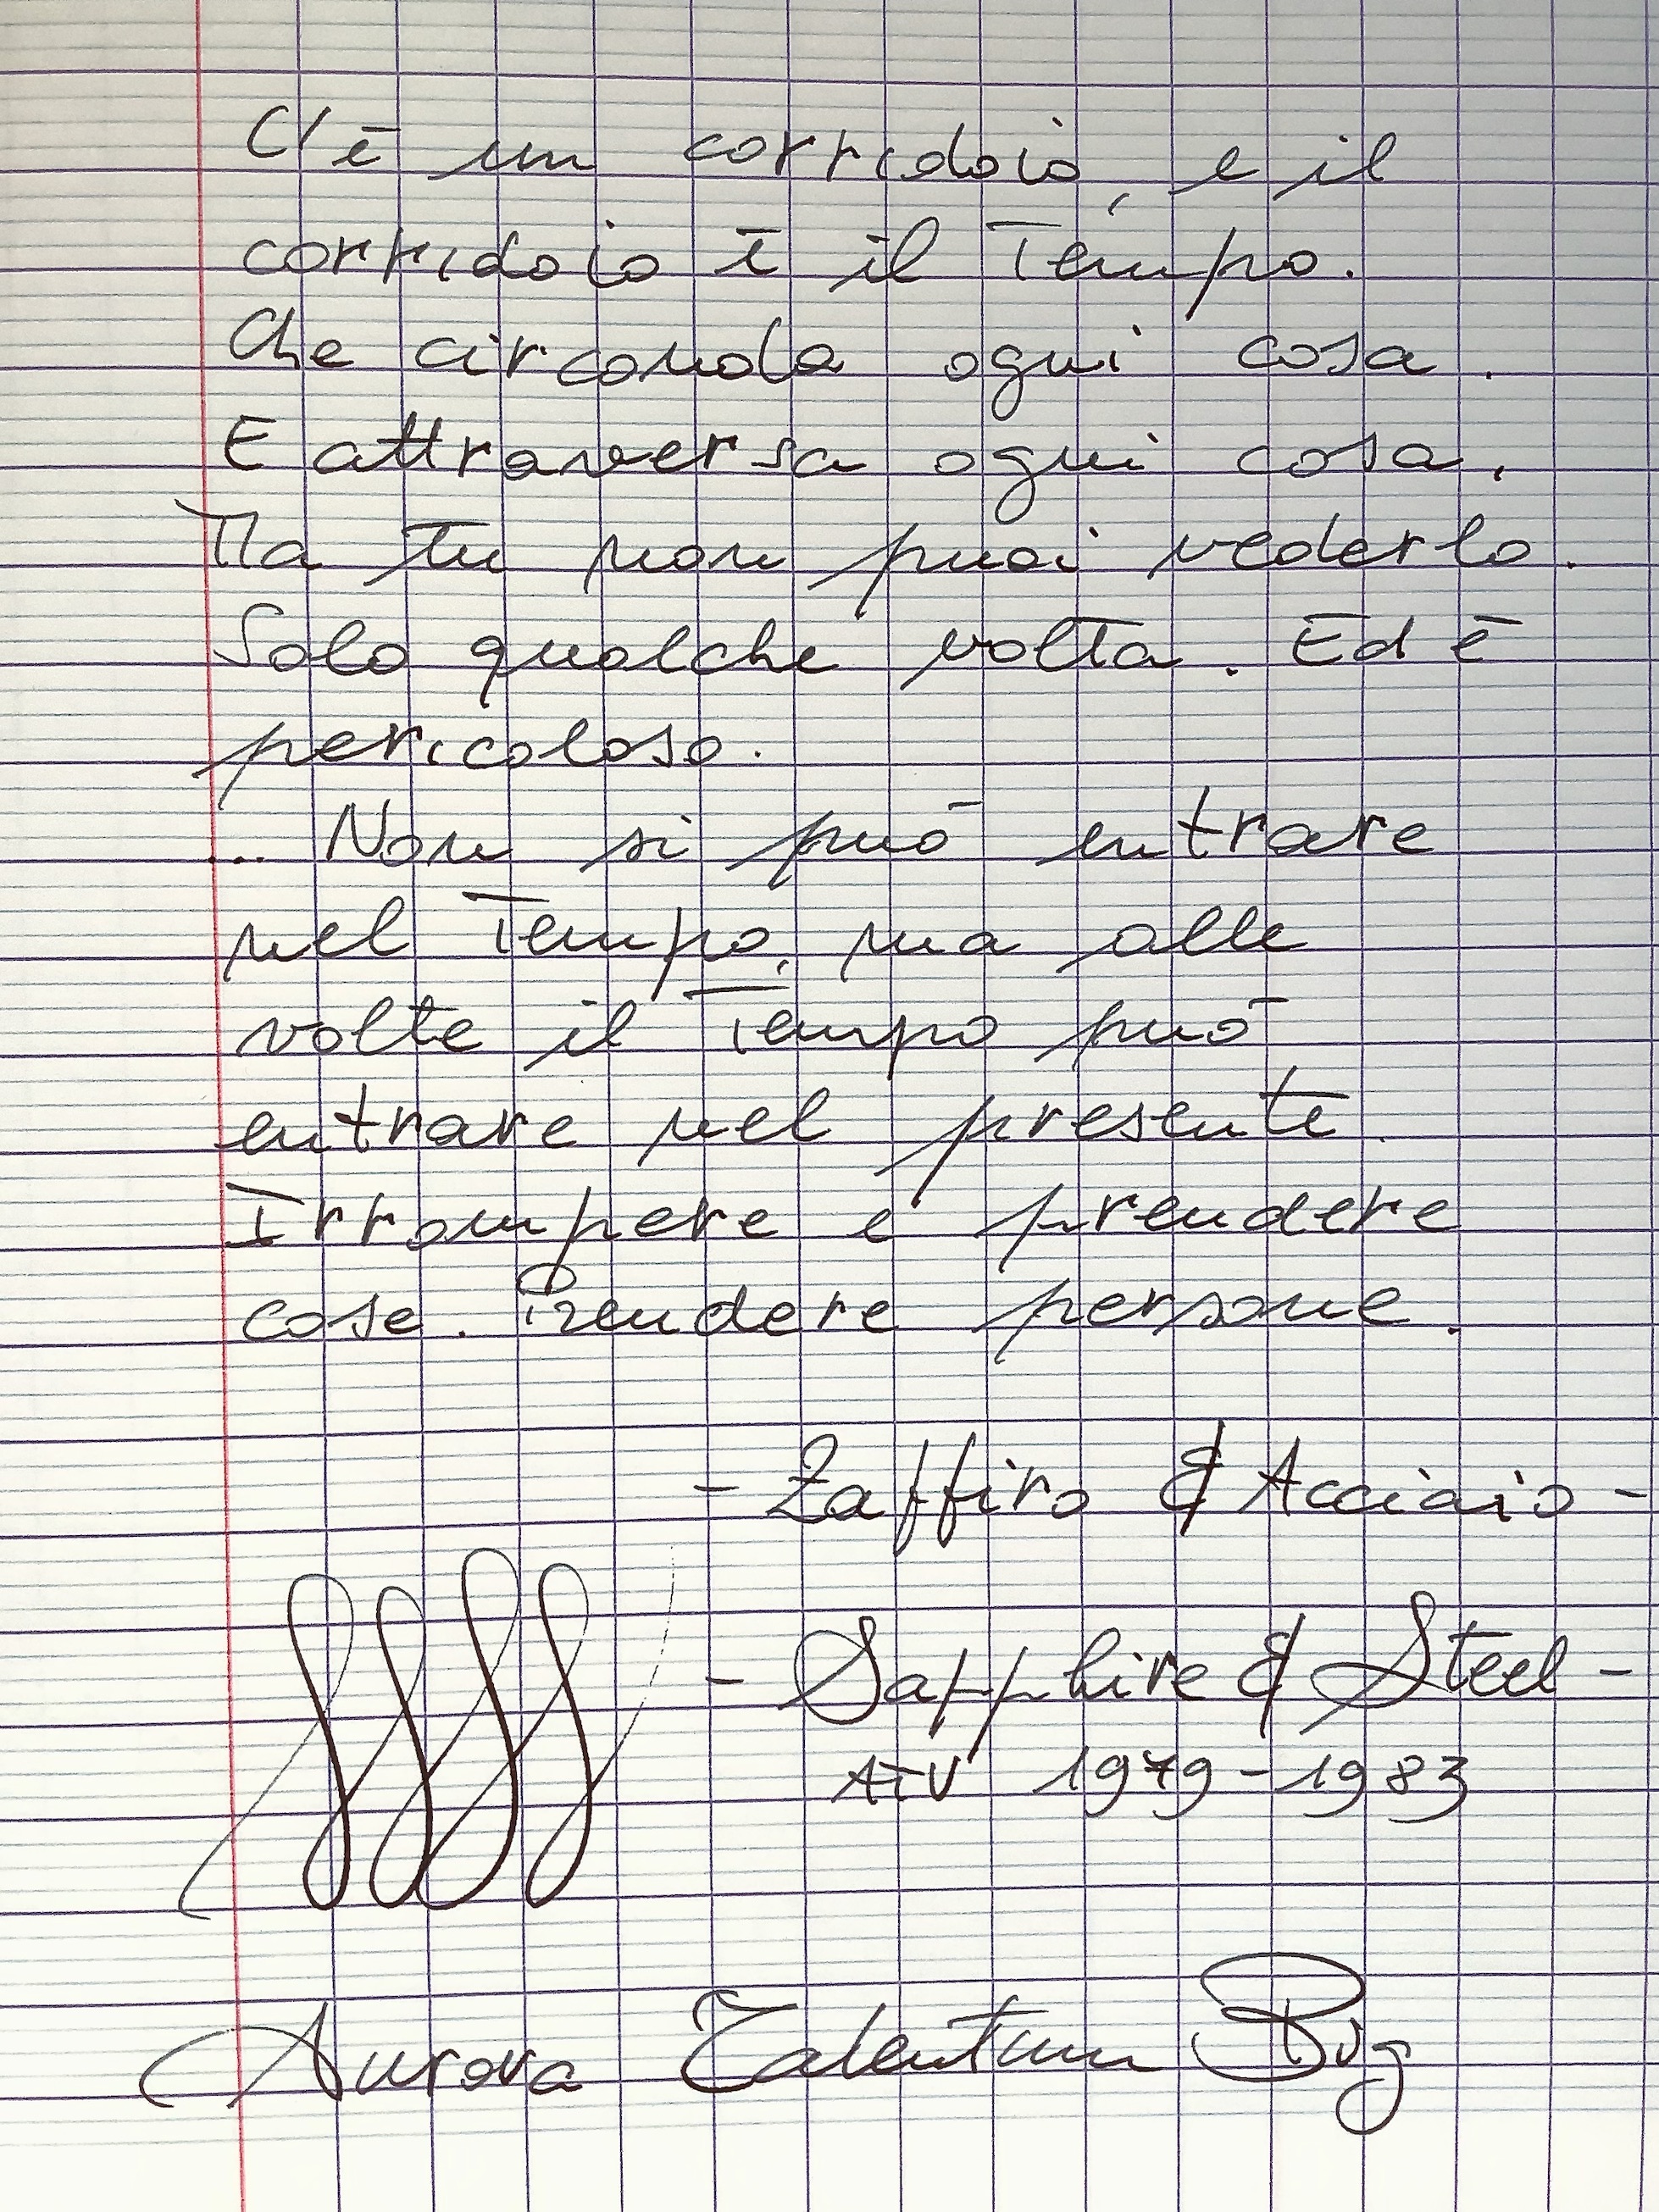 C'è un corridoio, e il
corridoio è il Tempo.
Che circonda ogni cosa.
E attraversa ogni cosa.
Ma tu non puoi vederlo.
Solo qualche volta. Ed è
pericoloso.
... Non si può entrare
nel Tempo, ma alle
volte il Tempo può
entrare nel presente.
Irrompere e prendere
cose. Prendere persone.
- Zaffiro & Acciaio -
- Sapphire & Steel -
ATV 1979-1983
Aurora Talentum Bvg